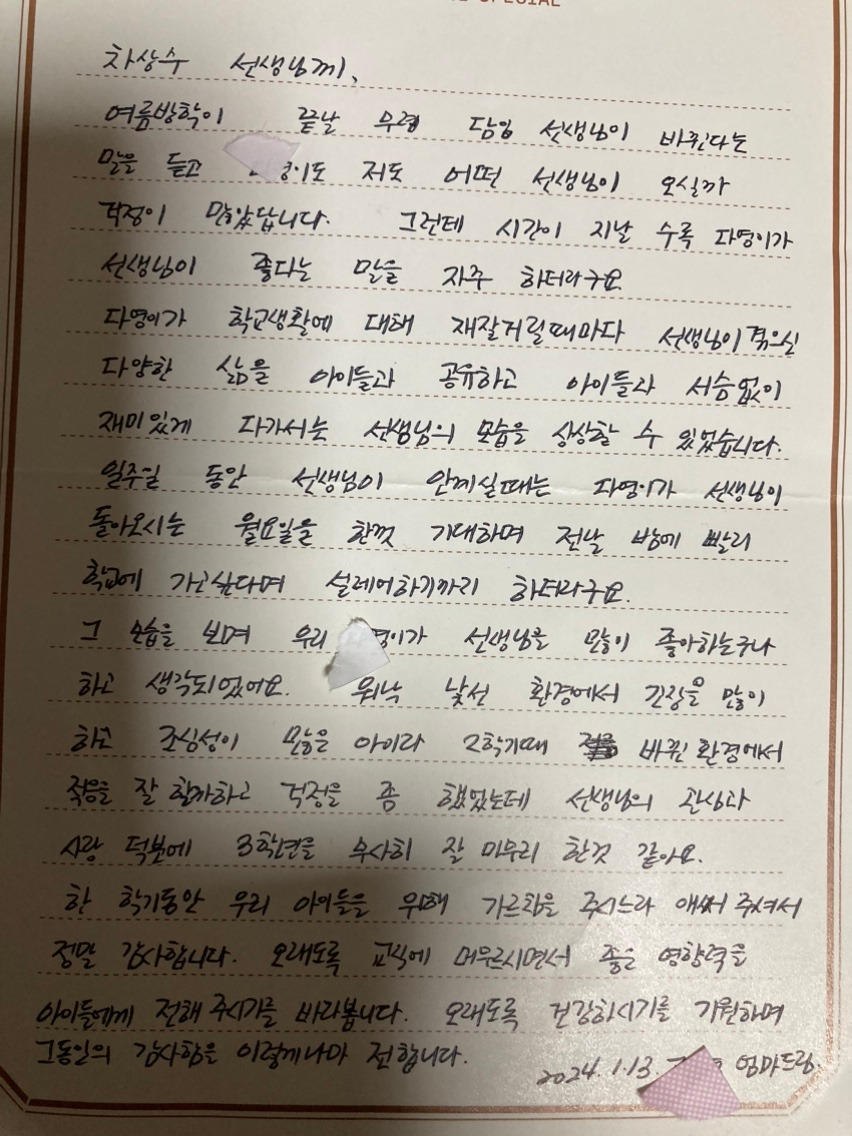 SPECIAL
차상수 선생님께,
여름방학이 끝날 무렵 담임 선생님이 바뀐다는
말을 듣고 영이도 저도 어떤 선생님이 오실까
걱정이 많았답니다. 그런데 시간이 지날 수록 다영이가
선생님이 좋다는 말을 자주 하더라구요
다영이가 학교생활에 대해 재잘거릴때마다 선생님이 겪으신
다양한 삶을 아이들과 공유하고 아이들과 서슴없이
재미있게 다가서는 선생님의 모습을 상상할 수 있었습니다.
일주일 동안 선생님이 안계실때는 다영이가 선생님이
돌아오시는 월요일을 한껏 기대하며 전날 밤에 빨리
학교에 가고싶다며 설레어하기까지 하더라구요.
그 모습을 보며 우리 영이가 선생님을 많이 좋아하는구나
하고 생각되었어요. 워낙 낯선 환경에서 긴장을 많이
하고 조심성이 많은 아이라 2학기때 바뀐 환경에서
적응을 잘 할까하고 걱정을 좀 했었는데 선생님의 관심과
사랑 덕분에 3학년을 무사히 잘 마무리 한것 같아요.
한 학기동안 우리 아이들을 위해 가르침을 주시느라 애써 주셔서
정말 감사합니다. 오래도록 교직에 머무르시면서 좋은 영향력을
아이들에게 전해 주시기를 바라봅니다. 오래도록 건강하시기를 기원하며
그동안의 감사함을 이렇게나마 전합니다.
2024. 1. 13. 엄마드림.